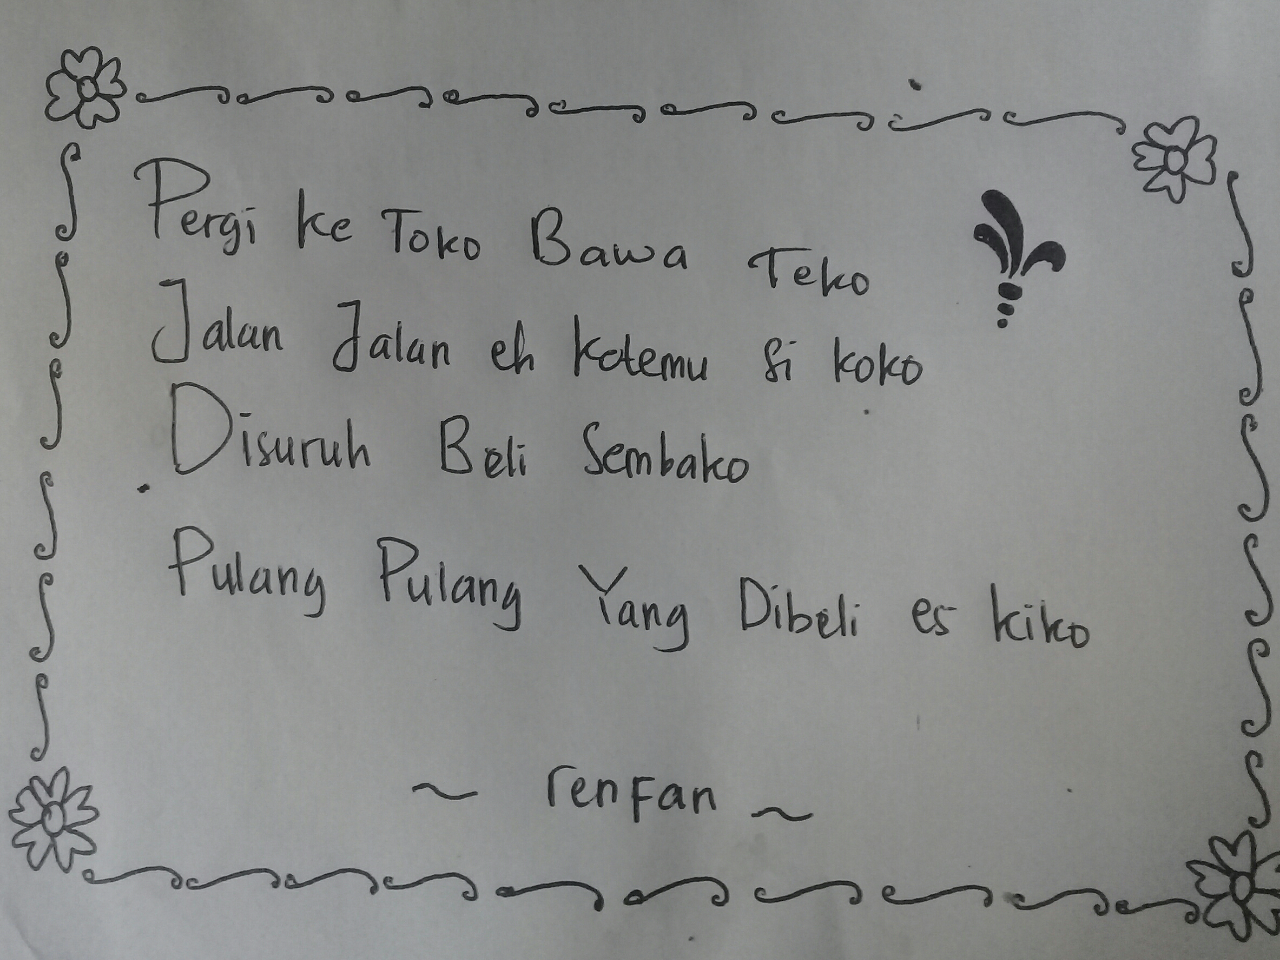 Pergi ke Toko Bawa Teko
Jalan Jalan eh ketemu si koko
Disuruh Beli Sembako
Pulang Pulang Yang Dibeli es kiko
~ renFan ~